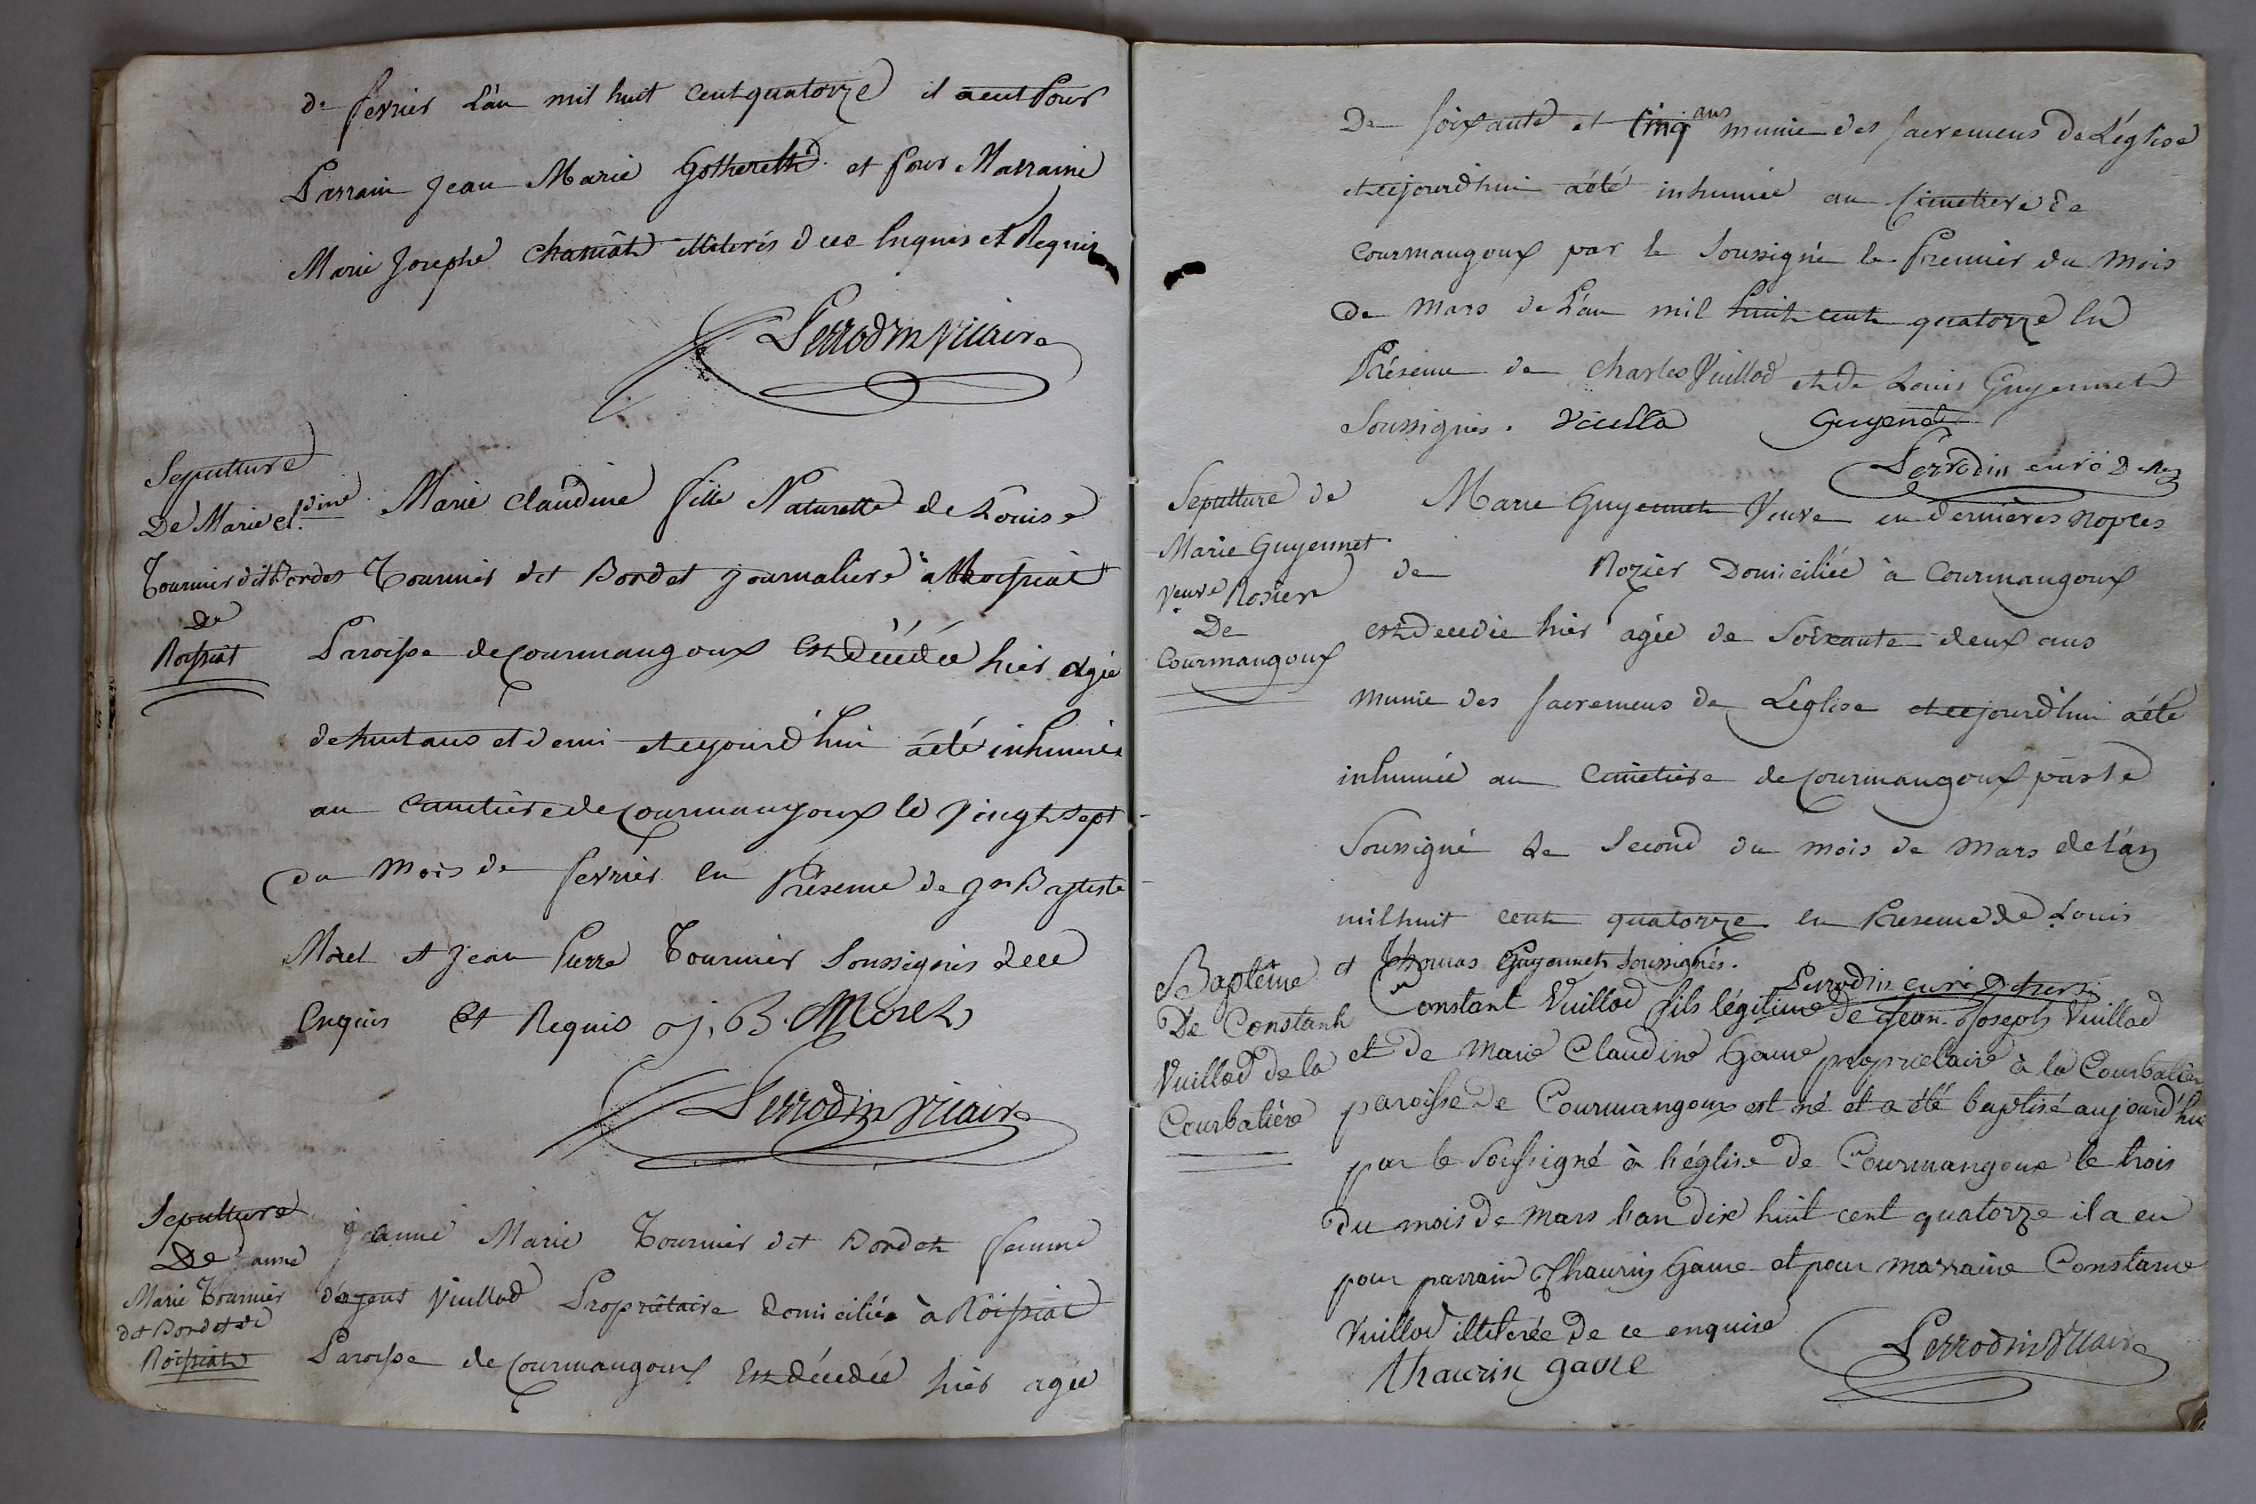 de fevrier l'an mil huit cent quatorze il a eut Pour
Parrain Jean Marie et pour Marraine
Marie Josephe illiterés de ce Enquis et Requis
Perrodin Vicaire
Sepulture
De Marie Cl.dine
Tournier dit Bordet
de
Roissiat
Marie Claudine fille Naturelle de Louise
Tournier dit Bordet journaliere à Roissiat
Paroisse de Courmangoux est décédée hier agée
de huit ans et demi et cejourd'hui a été inhumée
au cimetiere de Courmangoux le vingt sept
du mois de fevrier en Présence de Jn Baptiste
Morel et Jean Pierre Tournier Soussignés de ce
Enquis et Requis J. B. Morel
Perrodin Vicaire
Sepulture
De Janne
Marie Tournier
dit Bordet de
Roissiat
Janne Marie Tournier dit Bordet femme
Vuillod Propriétaire domiciliée à Roissiat
Paroisse de Courmangoux Est décédée hier agée
De soixante et Cinq ans munie des sacremens de L'église
et cejourd'hui a été inhumée au Cimetiere de
Courmangoux par le Soussigné le Premier du Mois
De Mars de L'an mil huit cent quatorze En
Présence de Charles Vuillod et de Louis Guyennet
Soussignés. Guyenet
Perrodin curé
Sepulture de
Marie Guyennet
Veuve Rosier
De
Courmangoux
Marie Guyennet Veuve en dernières Noples
de Rozier Domiciliée à Courmangoux
est decedée hier agée de Soixante deux ans
munie des sacremens de L'eglise et cejourd'hui a été
inhumée au Cimetière de Courmangoux par le
Soussigné Le Second du mois de Mars de l'an
mil huit cent quatorze en Presence de Louis
et Thomas Guyennet soussignés.
Perrodin curé
Baptême
De Constant
Vuillod de la
Courbatière
Constant Vuillod fils légitime de Jean-Joseph Vuillod
et de Marie Claudine Game propriétaire à la Courbatière
paroisse de Courmangoux est né et a été baptisé aujourd'hui
par le Soussigné à l'église de Courmangoux le trois
du mois de Mars l'an dix huit cent quatorze il a eu
pour parrain Thaurin Game et pour marraine Constance
Vuillod illiterée de ce enquise
Thaurin game
Perrodin Vicaire